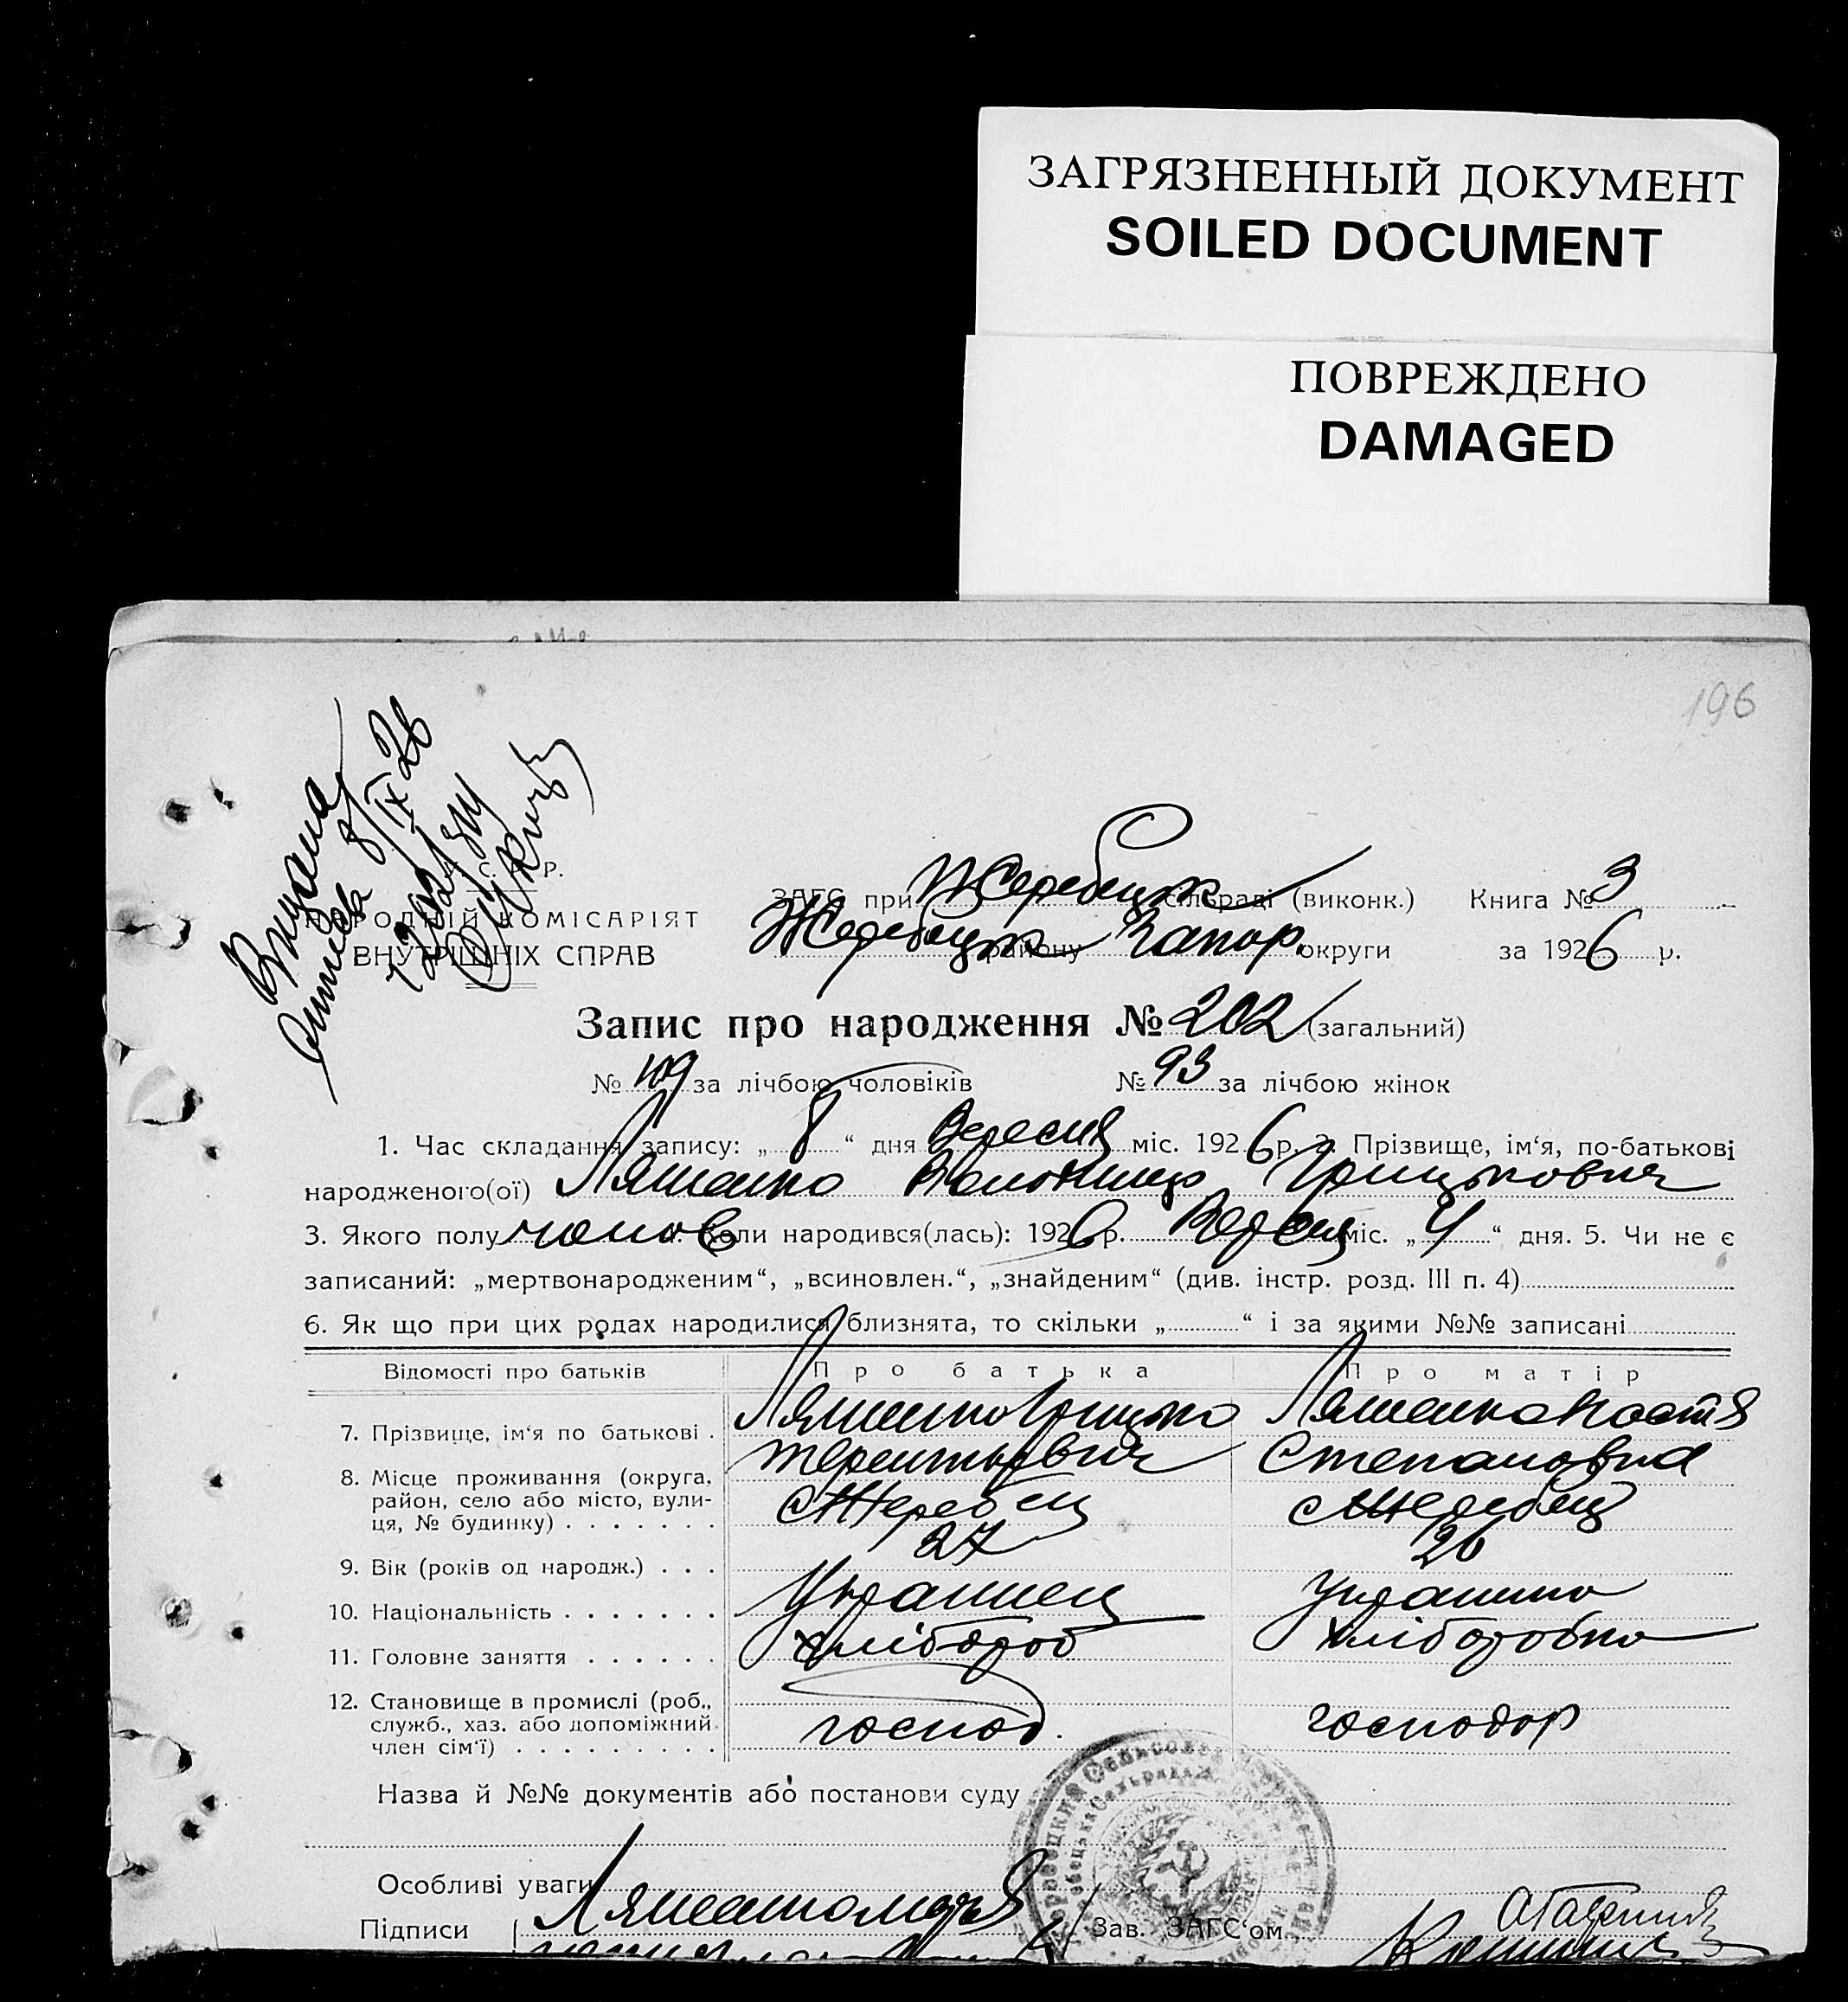 ЗАГРЯЗНЕННЫЙ ДОКУМЕНТ
SOILED DOCUMENT
ПОВРЕЖДЕНО
DAMAGED
196
Видана
8/IX 26
С. Р.
НАРОДНІЙ КОМІСАРІЯТ
ВНУТРІШНІХ СПРАВ
ЗАГС при Жеребецьк сільраді (виконк.) Книга № 3
Жеребецьк району Запор. округи за 1926 р.
Запис про народження № 202 (загальний)
№ 109 за лічбою чоловіків № 93 за лічбою жінок
1. Час складання запису: „ 8 “ дня Вересня міс. 1926 р. 2. Прізвище, ім‘я, по-батькові
народженого(ої) Ляшенко Володимир Грицькович
3. Якого полу чолов 4. Коли народився(лась): 1926 р. Вересня міс. „ 4 “ дня. 5. Чи не є
записаний: „мертвонародженим“, „всиновлен.“, „знайденим“ (див. інстр. розд. III п. 4)
6. Як що при цих родах народилися близнята, то скільки „ “ і за якими №№ записані
Відомості про батьків Про батька Про матір
7. Прізвище, ім‘я по батькові . Ляшенко Грицько Ляшенко Настя
Терентьович Степановна
8. Місце проживання (округа, район, село або місто, вули-
ця, № будинку) . . . . . . . с Жеребец с Жеребец
9. Вік (років од народж.) . . . 27 26
10. Національність . . . . . . . Украинец Украинка
11. Головне заняття . . . . . . хлібороб хліборобка
12. Становище в промислі (роб.,
служб., хаз. або допоміжний
член сім‘ї) . . . . . . . . . господ. господар
Назва й №№ документів або постанови суду
Особливі уваги
Підписи Ляшенко Зав. ЗАГС‘ом